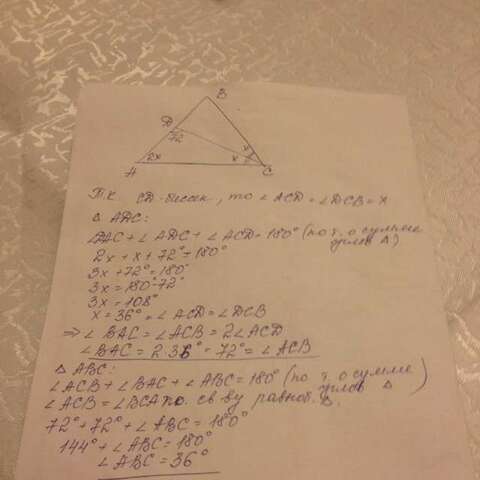 B
D
72
A 2x x C
Т.к. CD-биссек, то ∠ACD = ∠DCB = x
△ ADC:
∠DAC + ∠ADC + ∠ACD = 180° (по т. о сумме углов △)
2x + x + 72° = 180°
3x + 72° = 180°
3x = 180° - 72°
3x = 108°
x = 36° = ∠ACD = ∠DCB
⇒ ∠BAC = ∠ACB = 2∠ACD
∠BAC = 2·36° = 72° = ∠ACB
△ ABC:
∠ACB + ∠BAC + ∠ABC = 180° (по т. о сумме углов △)
∠ACB = ∠BCA по св-ву равноб. △.
72° + 72° + ∠ABC = 180°
144° + ∠ABC = 180°
∠ABC = 36°